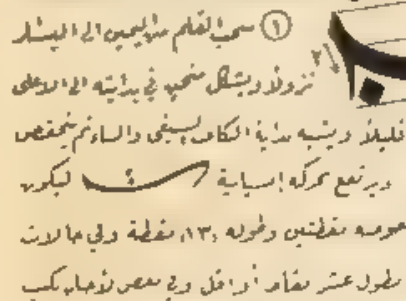 ① سحب القلم من اليمين الى اليسار
نزولاً وبشكل منحني في بدايته الى الاعلى
قليلاً ويشبه بداية الكاف السيفي والساء ثم ينخفض
ويرتفع بحركة إنسيابية ليكون
عرضه نقطتين وطوله ١٣ نقطة وفي حالات
بطول عشر نقاط أو اقل وفي بعض الأحيان